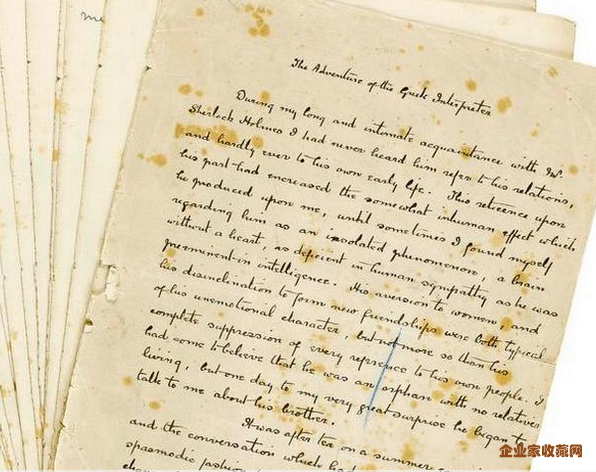 me
The Adventure of the Greek Interpreter
During my long and intimate acquaintance with Mr
Sherlock Holmes I had never heard him refer to his relations,
and hardly ever to his own early life. This reticence upon
his part had increased the somewhat inhuman effect which
he produced upon me, until sometimes I found myself
regarding him as an isolated phenomenon, a brain
without a heart, as deficient in human sympathy as he was
preeminent in intelligence. His aversion to women, and
his disinclination to form new friendships were both typical
of his unemotional character, but not more so than his
complete suppression of every reference to his own people. I
had come to believe that he was an orphan with no relatives
living, but one day to my very great surprise he began to
talk to me about his brother.
It was after tea on a summer
and the conversation which had
spasmodic fashion
企业家收藏网